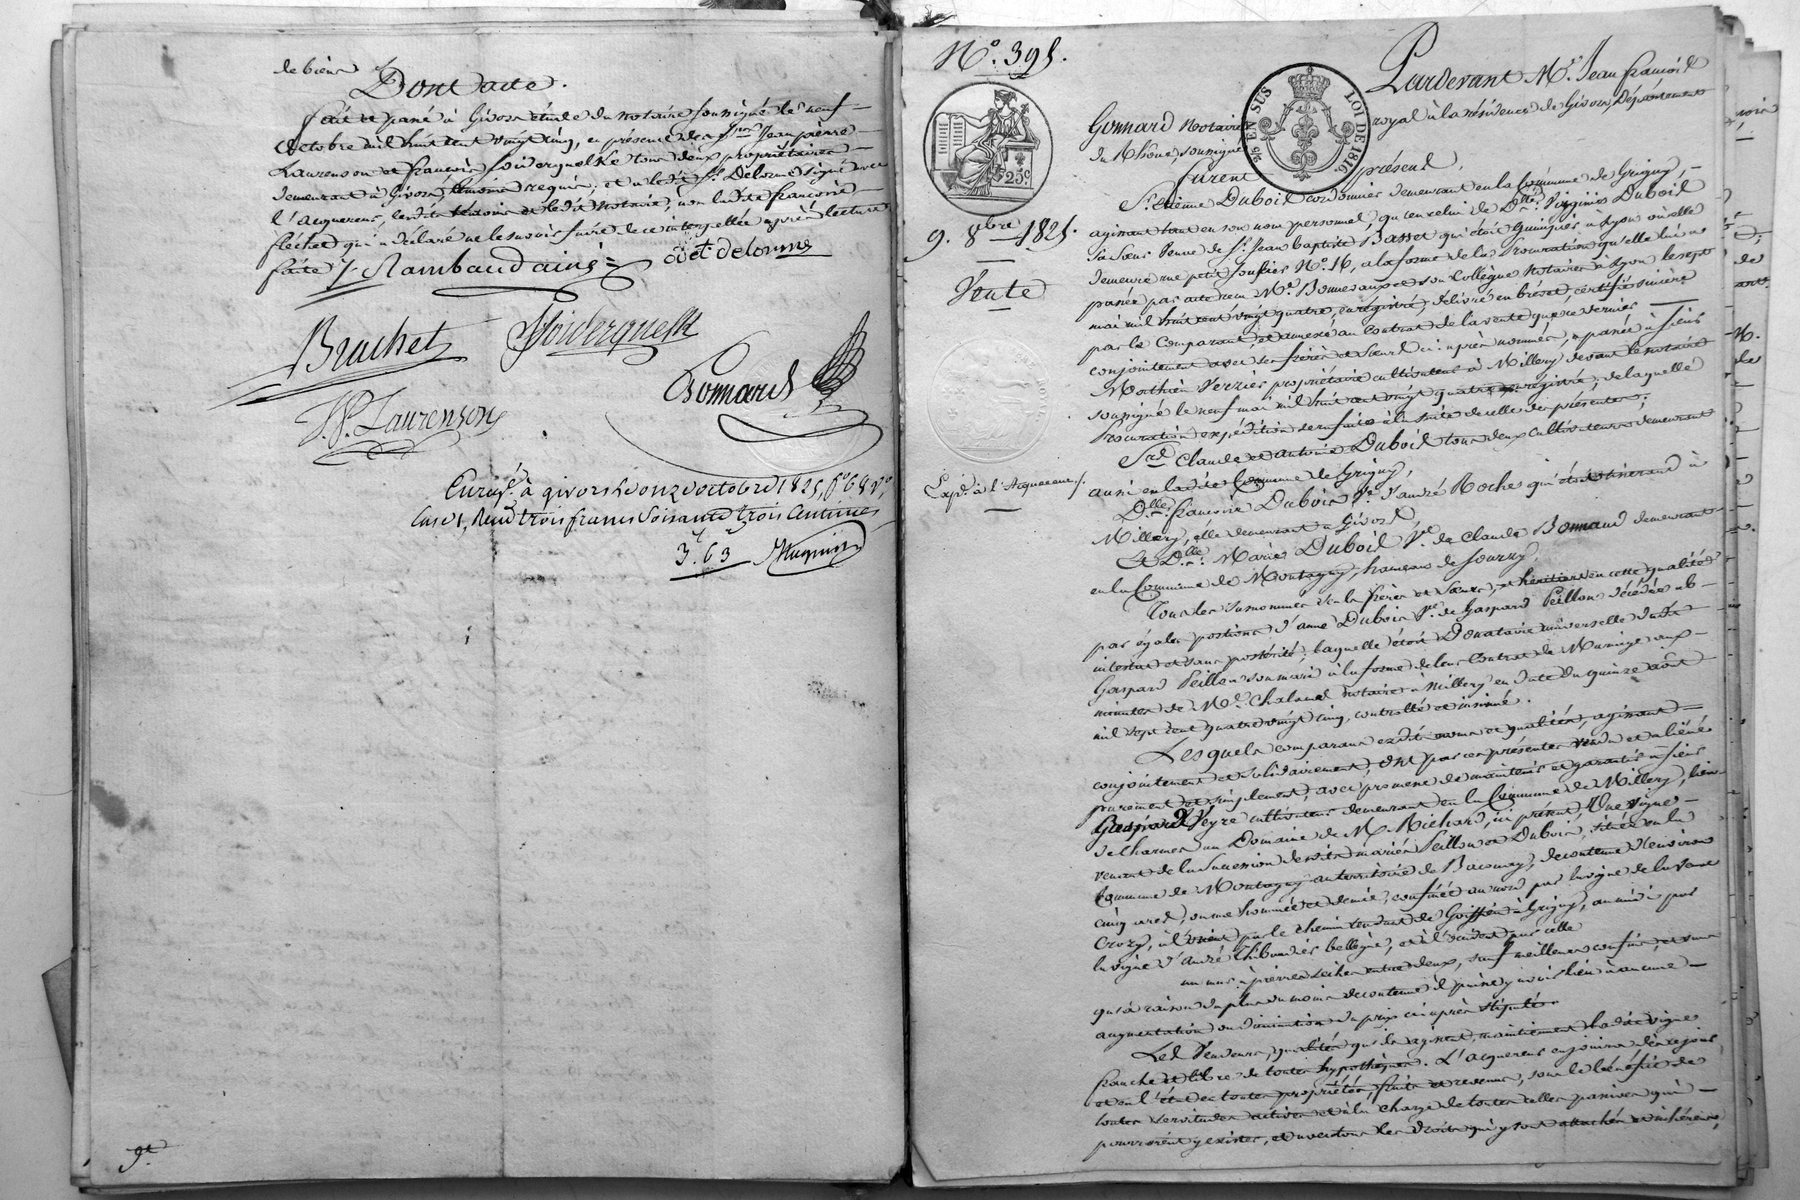 de biens /.
Dont acte.
fait et passé à Givors étude du notaire soussigné le neuf
octobre mil huit cent vingt cinq, en présence des srs Jean pierre
Laurenson et françois Soiderquelk tous deux propriétaires
demeurant à Givors, témoins requis; et ledit Sr. Delorme signé avec
l'acquereur, lesdits témoins et ledit notaire, non ladite françoise
fléchet qui a déclaré ne le savoir faire de ce interpellée après lecture
faite /. Rambaud ainé ett. delorme
Brachet Soiderquelk
Gonnard
J.P. Laurenson
Enregé. à givors le onze octobre 1825, fo 68 vo,
Case 1, Reçu trois francs soixante trois centimes
3. f 63 Huguin
9t.
No. 395.
Pardevant Me. Jean françois
Gonnard Notaire royal à la résidence de Givors, Département
du Rhône soussigné
furent présent,
96 EN SUS LOI DE 1816
25c.
9. 8bre 1825.
Vente
Expé. à l'Acquereur /.
Sr. Etienne Dubois cordonnier demeurant en la Commune de Grigny,
agissant tant en son nom personnel, qu'en celui de Dlle. Virginie Dubois
sa Sœur Veuve de Sr. Jean baptiste Basset qui étoit Guimpier à Lyon où elle
demeure rue petit soufflet No. 16, à la forme de la Procuration qu'elle lui a
passée par acte reçu Me. Bonnevaux et son Collègue Notaires à Lyon le sept
mai mil huit cent vingt quatre, enregistré, délivré en brevet, certifié sincère
par le Comparant et annexé au Contrat de la vente que ce dernier
conjointement avec ses frères et Sœurs ci-après nommés, a passée à sieur
Mathieu Verzier propriétaire cultivateur à Millery devant le notaire
soussigné le neuf mai mil huit cent vingt quatre enregistré, de laquelle
Procuration expédition sera faite à la suite de celle des présentes;
Srs Claude et Antoine Dubois tous deux Cultivateurs demeurant
aussi en ladite Commune de Grigny,
Dlle. françoise Dubois Ve. d'André Roche qui étoit tisserand à
Millery, elle demeurant à Givors
Et Dlle. Marie Dubois Ve. de Claude Bonnaud demeurant
en la Commune de Montagny, hameau de Sourzy,
Tous les susnommés seuls frères et Sœurs, et héritiers en cette qualité
par égales portions d'anne Dubois Ve. de Gaspard Peillon décédée ab-
intestat et sans postérité, laquelle étoit Donataire universelle dudit
Gaspard Peillon son mari à la forme de leur Contrat de Mariage aux
minutes de Me. Chaland notaire à Millery en date du quinze août
mil sept cent quatre vingt cinq, controllé et insinué.
Lesquels comparans esdits noms et qualités, agissant
conjointement et solidairement, ont par ces présentes vendu et aliéné
purement et simplement, avec promesse de maintenir et garantir à sieur
Gaspard Peyre cultivateur demeurant en la Commune de Millery, lieu
de Charmes au Domaine de M. Richard, ici présent, Une vigne
venant de la succession desdits mariés Peillon et Dubois, située en la
Commune de Montagny au territoire de Bacomay, de contenue d'environ
cinq ares, ou une hommée et demie, confinée au nord par la vigne de la Veuve
Crozy, à l'orient par le chemin tendant de Goiffieu à Grigny, au midi par
la vigne d'André Thiboudier bellegue, et à l'occident par celle
un mur à pierres sèches entre deux, sauf meilleurs confins, et sans
qu'à raison du plus ou moins de contenue il puisse y avoir lieu à aucune
augmentation ou diminution du prix ci-après stipulé.
Les Vendeurs, qualités qu'ils agissent, maintiennent ladite vigne
franche et libre de toutes hypothèques. L'acquereur en jouira dès ce jour
et en l'état en toutes propriétés, fruits et revenus, sous le bénéfice de
toutes servitudes actives et à la charge de toutes celles passives qui
pourroient y exister, et avec tous les droits qui y sont attachés et inhérens,